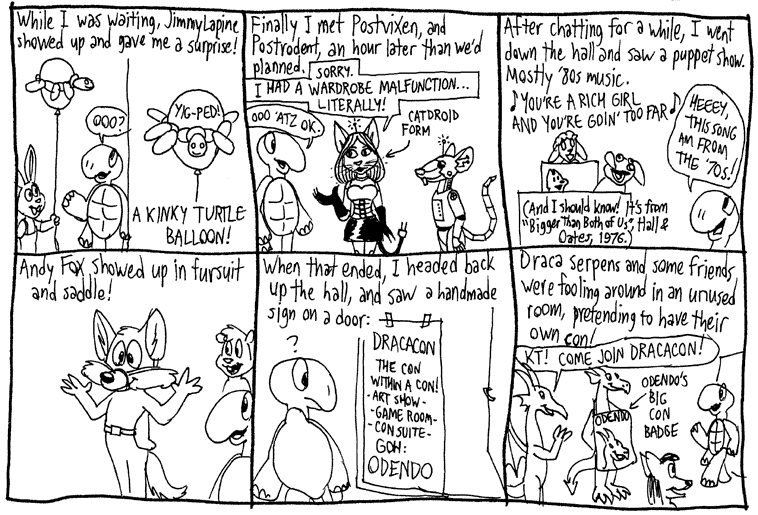 While I was waiting, JimmyLapine
showed up and gave me a surprise!
OOO?
YIG-PED!
A KINKY TURTLE
BALLOON!
Finally I met Postvixen, and
Postrodent, an hour later than we'd
planned.
SORRY.
I HAD A WARDROBE MALFUNCTION...
LITERALLY!
OOO 'ATZ OK.
CATDROID
FORM
After chatting for a while, I went
down the hall and saw a puppet show.
Mostly '80s music.
♪YOU'RE A RICH GIRL
AND YOU'RE GOIN' TOO FAR♪
HEEEY,
THIS SONG
AM FROM
THE '70s!
(And I should know! It's from
"Bigger Than Both of Us", Hall &
Oates, 1976.)
Andy Fox showed up in fursuit
and saddle!
When that ended, I headed back
up the hall, and saw a handmade
sign on a door:
?
DRACACON
THE CON
WITHIN A CON!
-ART SHOW-
-GAME ROOM-
-CON SUITE-
GOH:
ODENDO
Draca serpens and some friends
were fooling around in an unused
room, pretending to have their
own con!
KT! COME JOIN DRACACON!
ODENDO
ODENDO'S
BIG
CON
BADGE